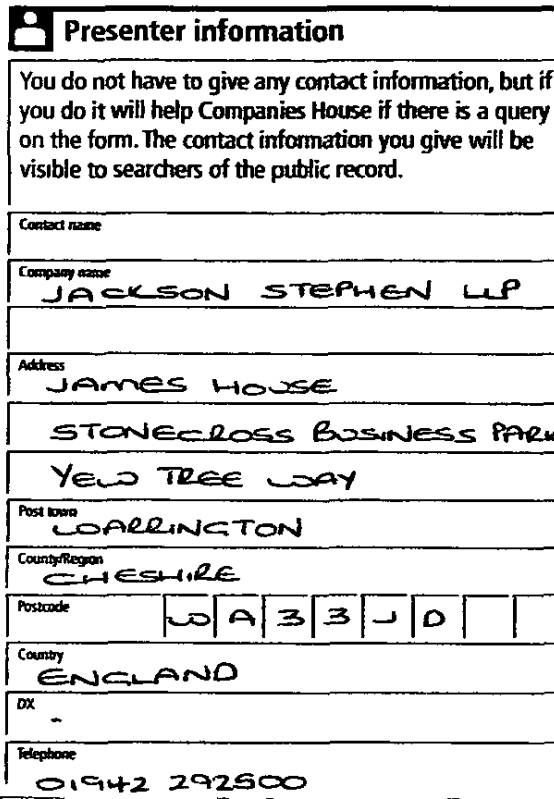 Presenter information
You do not have to give any contact information, but if
you do it will help Companies House if there is a query
on the form. The contact information you give will be
visible to searchers of the public record.
Contact name
Company name
JACKSON STEPHEN LLP
Address
JAMES HOUSE
STONECROSS BUSINESS PARK
YEW TREE WAY
Post town
WARRINGTON
County/Region
CHESHIRE
Postcode
WA33JD
Country
ENGLAND
DX
-
Telephone
01942 292500